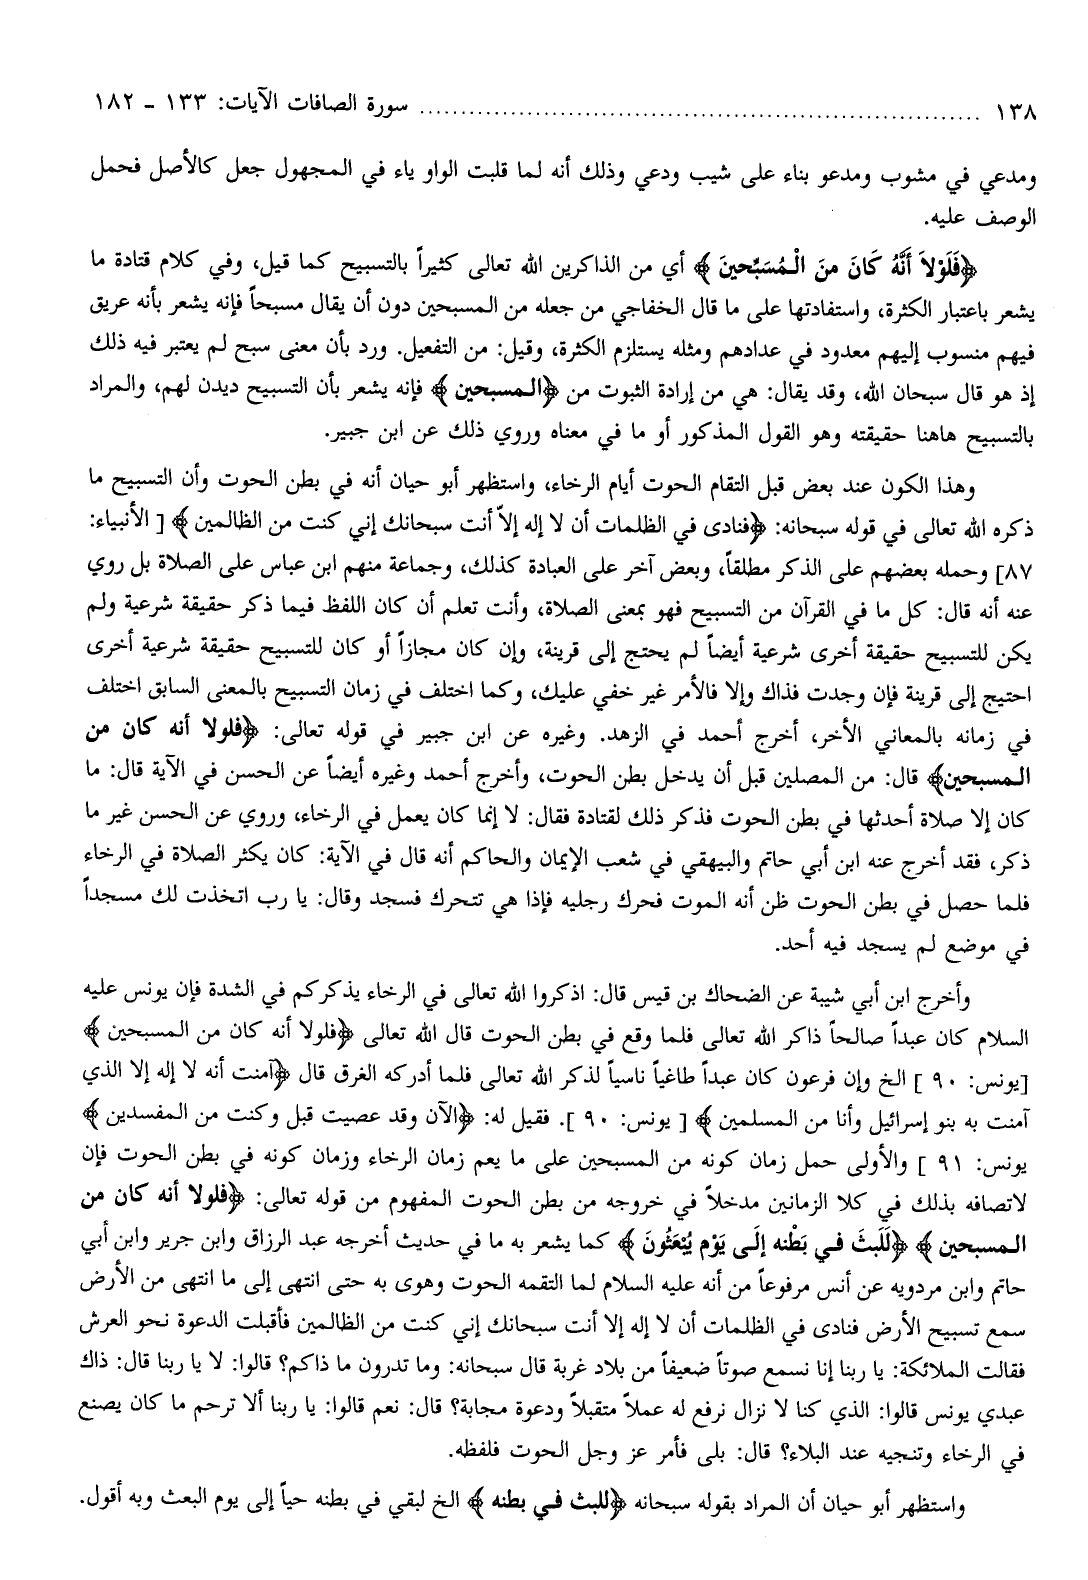 ١٣٨ ............................................................ سورة الصافات الآيات: ١٣٣ ـ ١٨٢
ومدعي في مشوب ومدعو بناء على شيب ودعي وذلك أنه لما قلبت الواو ياء في المجهول جعل كالأصل فحمل
الوصف عليه.
﴿فَلَوْلاَ أَنَّهُ كَانَ منَ الْمُسَبِّحينَ﴾ أي من الذاكرين الله تعالى كثيراً بالتسبيح كما قيل، وفي كلام قتادة ما
يشعر باعتبار الكثرة، واستفادتها على ما قال الخفاجي من جعله من المسبحين دون أن يقال مسبحاً فإنه يشعر بأنه عريق
فيهم منسوب إليهم معدود في عدادهم ومثله يستلزم الكثرة، وقيل: من التفعيل. ورد بأن معنى سبح لم يعتبر فيه ذلك
إذ هو قال سبحان الله، وقد يقال: هي من إرادة الثبوت من ﴿المسبحين﴾ فإنه يشعر بأن التسبيح ديدن لهم، والمراد
بالتسبيح هاهنا حقيقته وهو القول المذكور أو ما في معناه وروي ذلك عن ابن جبير.
وهذا الكون عند بعض قبل التقام الحوت أيام الرخاء، واستظهر أبو حيان أنه في بطن الحوت وأن التسبيح ما
ذكره الله تعالى في قوله سبحانه: ﴿فنادى في الظلمات أن لا إله إلاّ أنت سبحانك إني كنت من الظالمين﴾ [ الأنبياء:
٨٧] وحمله بعضهم على الذكر مطلقاً، وبعض آخر على العبادة كذلك، وجماعة منهم ابن عباس على الصلاة بل روي
عنه أنه قال: كل ما في القرآن من التسبيح فهو بمعنى الصلاة، وأنت تعلم أن كان اللفظ فيما ذكر حقيقة شرعية ولم
يكن للتسبيح حقيقة أخرى شرعية أيضاً لم يحتج إلى قرينة، وإن كان مجازاً أو كان للتسبيح حقيقة شرعية أخرى
احتيج إلى قرينة فإن وجدت فذاك وإلا فالأمر غير خفي عليك، وكما اختلف في زمان التسبيح بالمعنى السابق اختلف
في زمانه بالمعاني الأخر، أخرج أحمد في الزهد. وغيره عن ابن جبير في قوله تعالى: ﴿فلولا أنه كان من
المسبحين﴾ قال: من المصلين قبل أن يدخل بطن الحوت، وأخرج أحمد وغيره أيضاً عن الحسن في الآية قال: ما
كان إلا صلاة أحدثها في بطن الحوت فذكر ذلك لقتادة فقال: لا إنما كان يعمل في الرخاء، وروي عن الحسن غير ما
ذكر، فقد أخرج عنه ابن أبي حاتم والبيهقي في شعب الإيمان والحاكم أنه قال في الآية: كان يكثر الصلاة في الرخاء
فلما حصل في بطن الحوت ظن أنه الموت فحرك رجليه فإذا هي تتحرك فسجد وقال: يا رب اتخذت لك مسجداً
في موضع لم يسجد فيه أحد.
وأخرج ابن أبي شيبة عن الضحاك بن قيس قال: اذكروا الله تعالى في الرخاء يذكركم في الشدة فإن يونس عليه
السلام كان عبداً صالحاً ذاكر الله تعالى فلما وقع في بطن الحوت قال الله تعالى ﴿فلولا أنه كان من المسبحين﴾
[يونس: ٩٠ ] الخ وإن فرعون كان عبداً طاغياً ناسياً لذكر الله تعالى فلما أدركه الغرق قال ﴿آمنت أنه لا إله إلا الذي
آمنت به بنو إسرائيل وأنا من المسلمين﴾ [ يونس: ٩٠ ]. فقيل له: ﴿الآن وقد عصيت قبل وكنت من المفسدين﴾
يونس: ٩١ ] والأولى حمل زمان كونه من المسبحين على ما يعم زمان الرخاء وزمان كونه في بطن الحوت فإن
لاتصافه بذلك في كلا الزمانين مدخلاً في خروجه من بطن الحوت المفهوم من قوله تعالى: ﴿فلولا أنه كان من
المسبحين﴾ ﴿لَلَبثَ في بَطْنه إلَى يَوْم يُبْعَثُونَ﴾ كما يشعر به ما في حديث أخرجه عبد الرزاق وابن جرير وابن أبي
حاتم وابن مردويه عن أنس مرفوعاً من أنه عليه السلام لما التقمه الحوت وهوى به حتى انتهى إلى ما انتهى من الأرض
سمع تسبيح الأرض فنادى في الظلمات أن لا إله إلا أنت سبحانك إني كنت من الظالمين فأقبلت الدعوة نحو العرش
فقالت الملائكة: يا ربنا إنا نسمع صوتاً ضعيفاً من بلاد غربة قال سبحانه: وما تدرون ما ذاكم؟ قالوا: لا يا ربنا قال: ذاك
عبدي يونس قالوا: الذي كنا لا نزال نرفع له عملاً متقبلاً ودعوة مجابة؟ قال: نعم قالوا: يا ربنا ألا ترحم ما كان يصنع
في الرخاء وتنجيه عند البلاء؟ قال: بلى فأمر عز وجل الحوت فلفظه.
واستظهر أبو حيان أن المراد بقوله سبحانه ﴿للبث في بطنه﴾ الخ لبقي في بطنه حياً إلى يوم البعث وبه أقول.